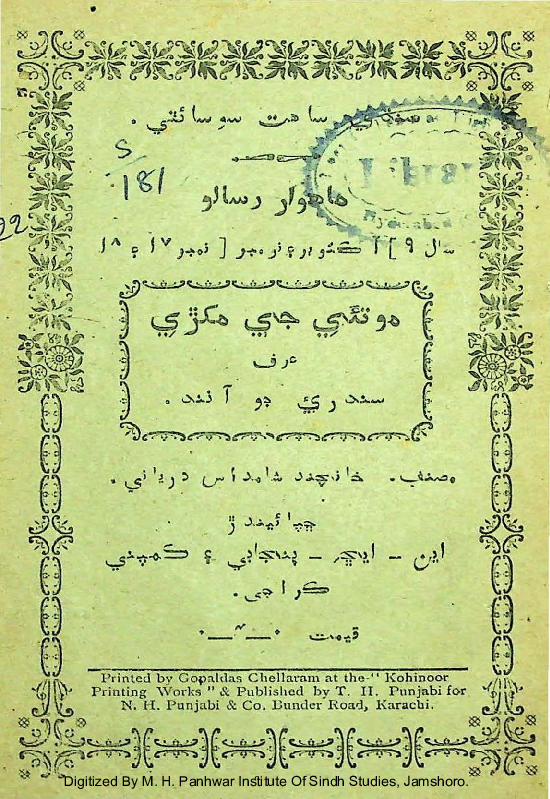 سنڌي ساهت سوسائٽي .
S/181
Library
22
ماهوار رسالو
سال ۹ ] آڪٽوبر ۽ نومبر [ نمبر ۱۷ ۽ ۱۸
موتئي جي مکڙي
عرف
سندري جو آنند .
مصنف . خانچند شامداس درياني .
ڇپائيندڙ
اين - ايچ - پنجابي ۽ ڪمپني
ڪراچي .
قيمت
Printed by Gopaldas Chellaram at the "Kohinoor
Printing Works" & Published by T. H. Punjabi for
N. H. Punjabi & Co. Bunder Road, Karachi.
Digitized By M. H. Panhwar Institute Of Sindh Studies, Jamshoro.